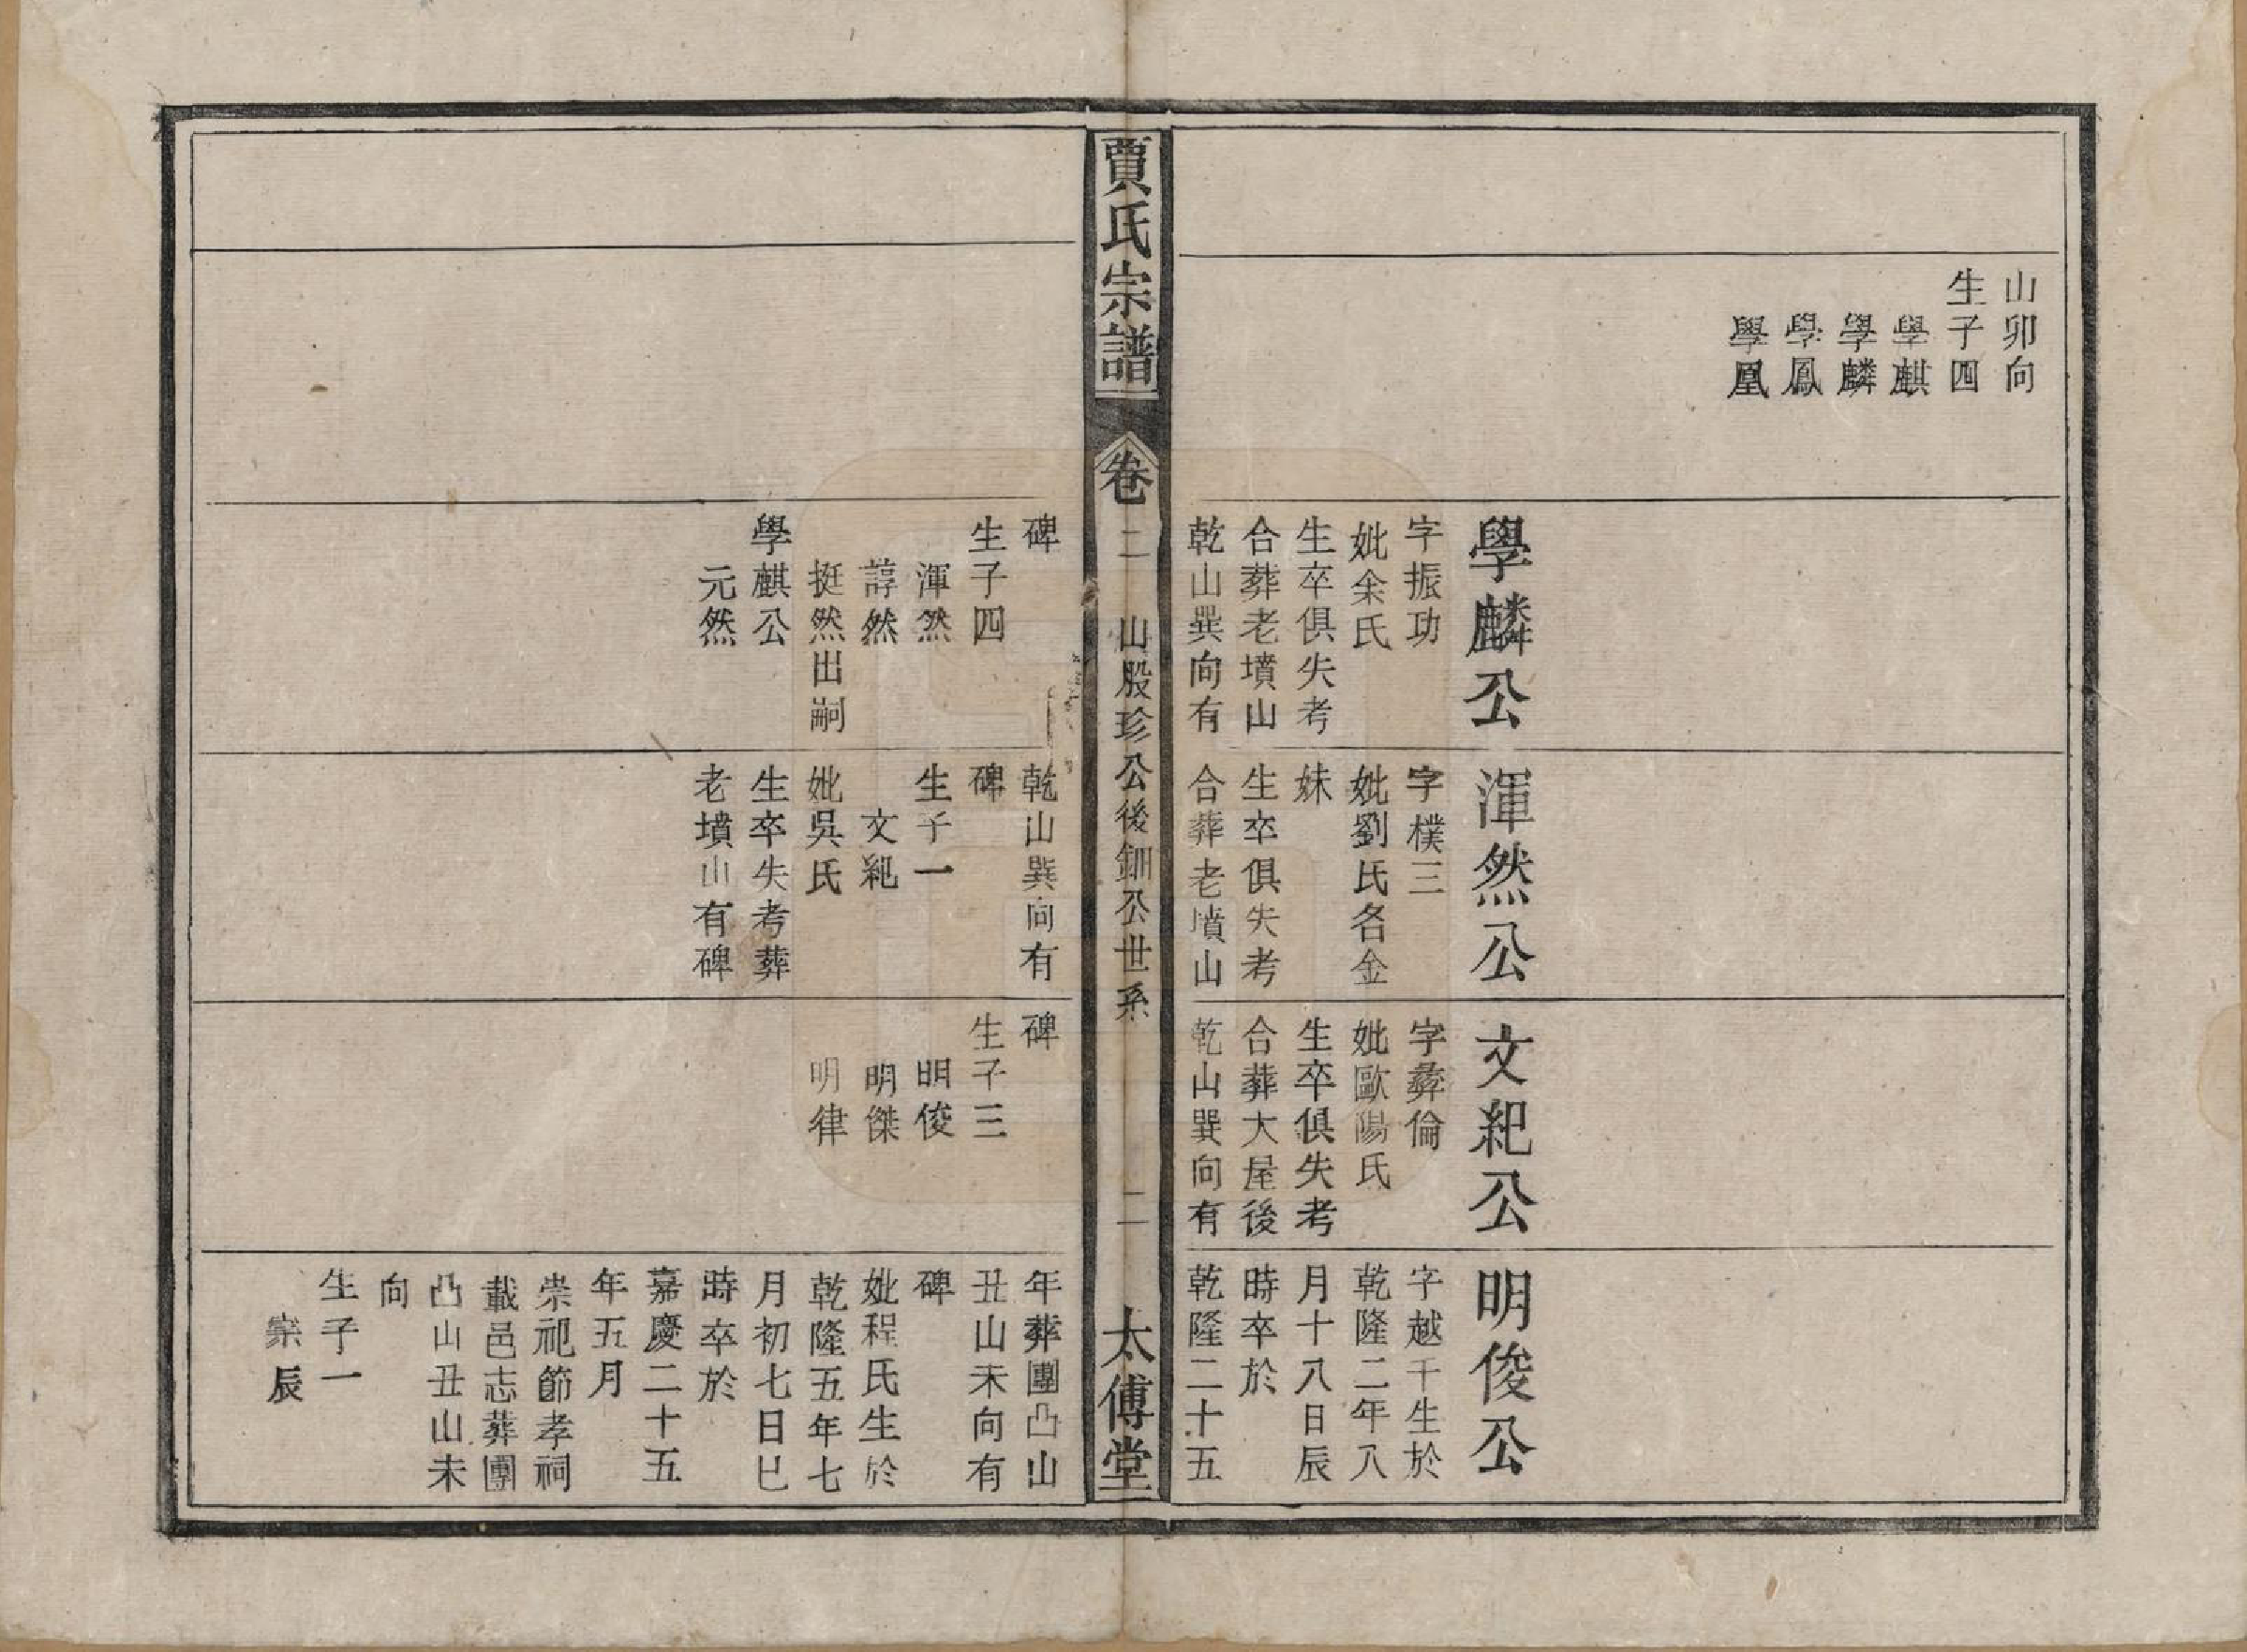 山卯向
生子四
學麒
學麟
學鳳
學凰
學麟公
字振功
妣余氏
生卒俱失考
合葬老墳山
乾山巽向有
渾然公
字樸三
妣劉氏名金
妹
生卒俱失考
合葬老墳山
文紀公
字彝倫
妣歐陽氏
生卒俱失考
合葬大屋後
乾山巽向有
明俊公
字越千生於
乾隆二年八
月十八日辰
時卒於
乾隆二十五
賈氏宗譜
卷二
山股珍公後鈿公世系
二
太傅堂
碑
生子四
渾然
諄然
挺然出嗣
學麒公
元然
乾山巽向有
碑
生子一
文紀
妣吳氏
生卒失考葬
老墳山有碑
碑
生子三
明俊
明傑
明律
年葬團凸山
丑山未向有
碑
妣程氏生於
乾隆五年七
月初七日巳
時卒於
嘉慶二十五
年五月
崇祀節孝祠
載邑志葬團
凸山丑山未
向
生子一
寀辰